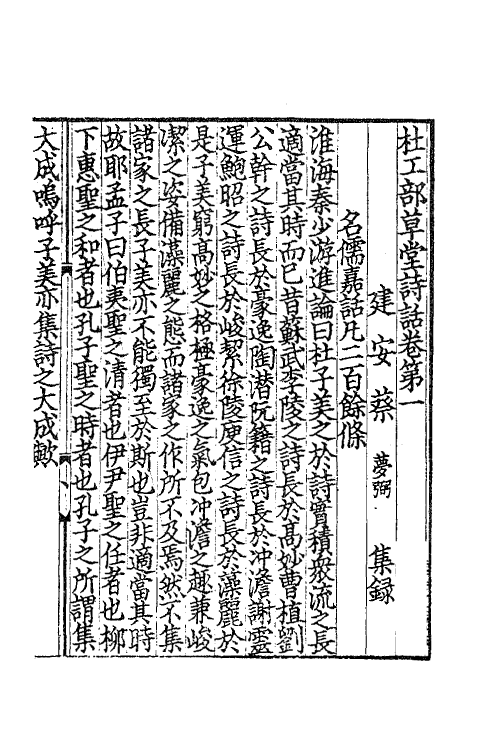 杜工部草堂詩話卷第一
建安蔡夢弼集録
名儒嘉話凡二百餘條
淮海秦少游進論曰杜子美之於詩實積衆流之長
適當其時而已昔蘇武李陵之詩長於髙妙曹植劉
公幹之詩長於豪逸陶潜阮籍之詩長於冲澹謝靈
運鮑昭之詩長於峻潔徐陵庾信之詩長於藻麗於
是子美窮髙妙之格極豪逸之氣包冲澹之趣兼峻
潔之姿備藻麗之態而諸家之作所不及焉然不集
諸家之長子美亦不能獨至於斯也豈非適當其時
故耶孟子曰伯夷聖之清者也伊尹聖之任者也柳
下惠聖之和者也孔子聖之時者也孔子之所謂集
大成嗚呼子美亦集詩之大成歟